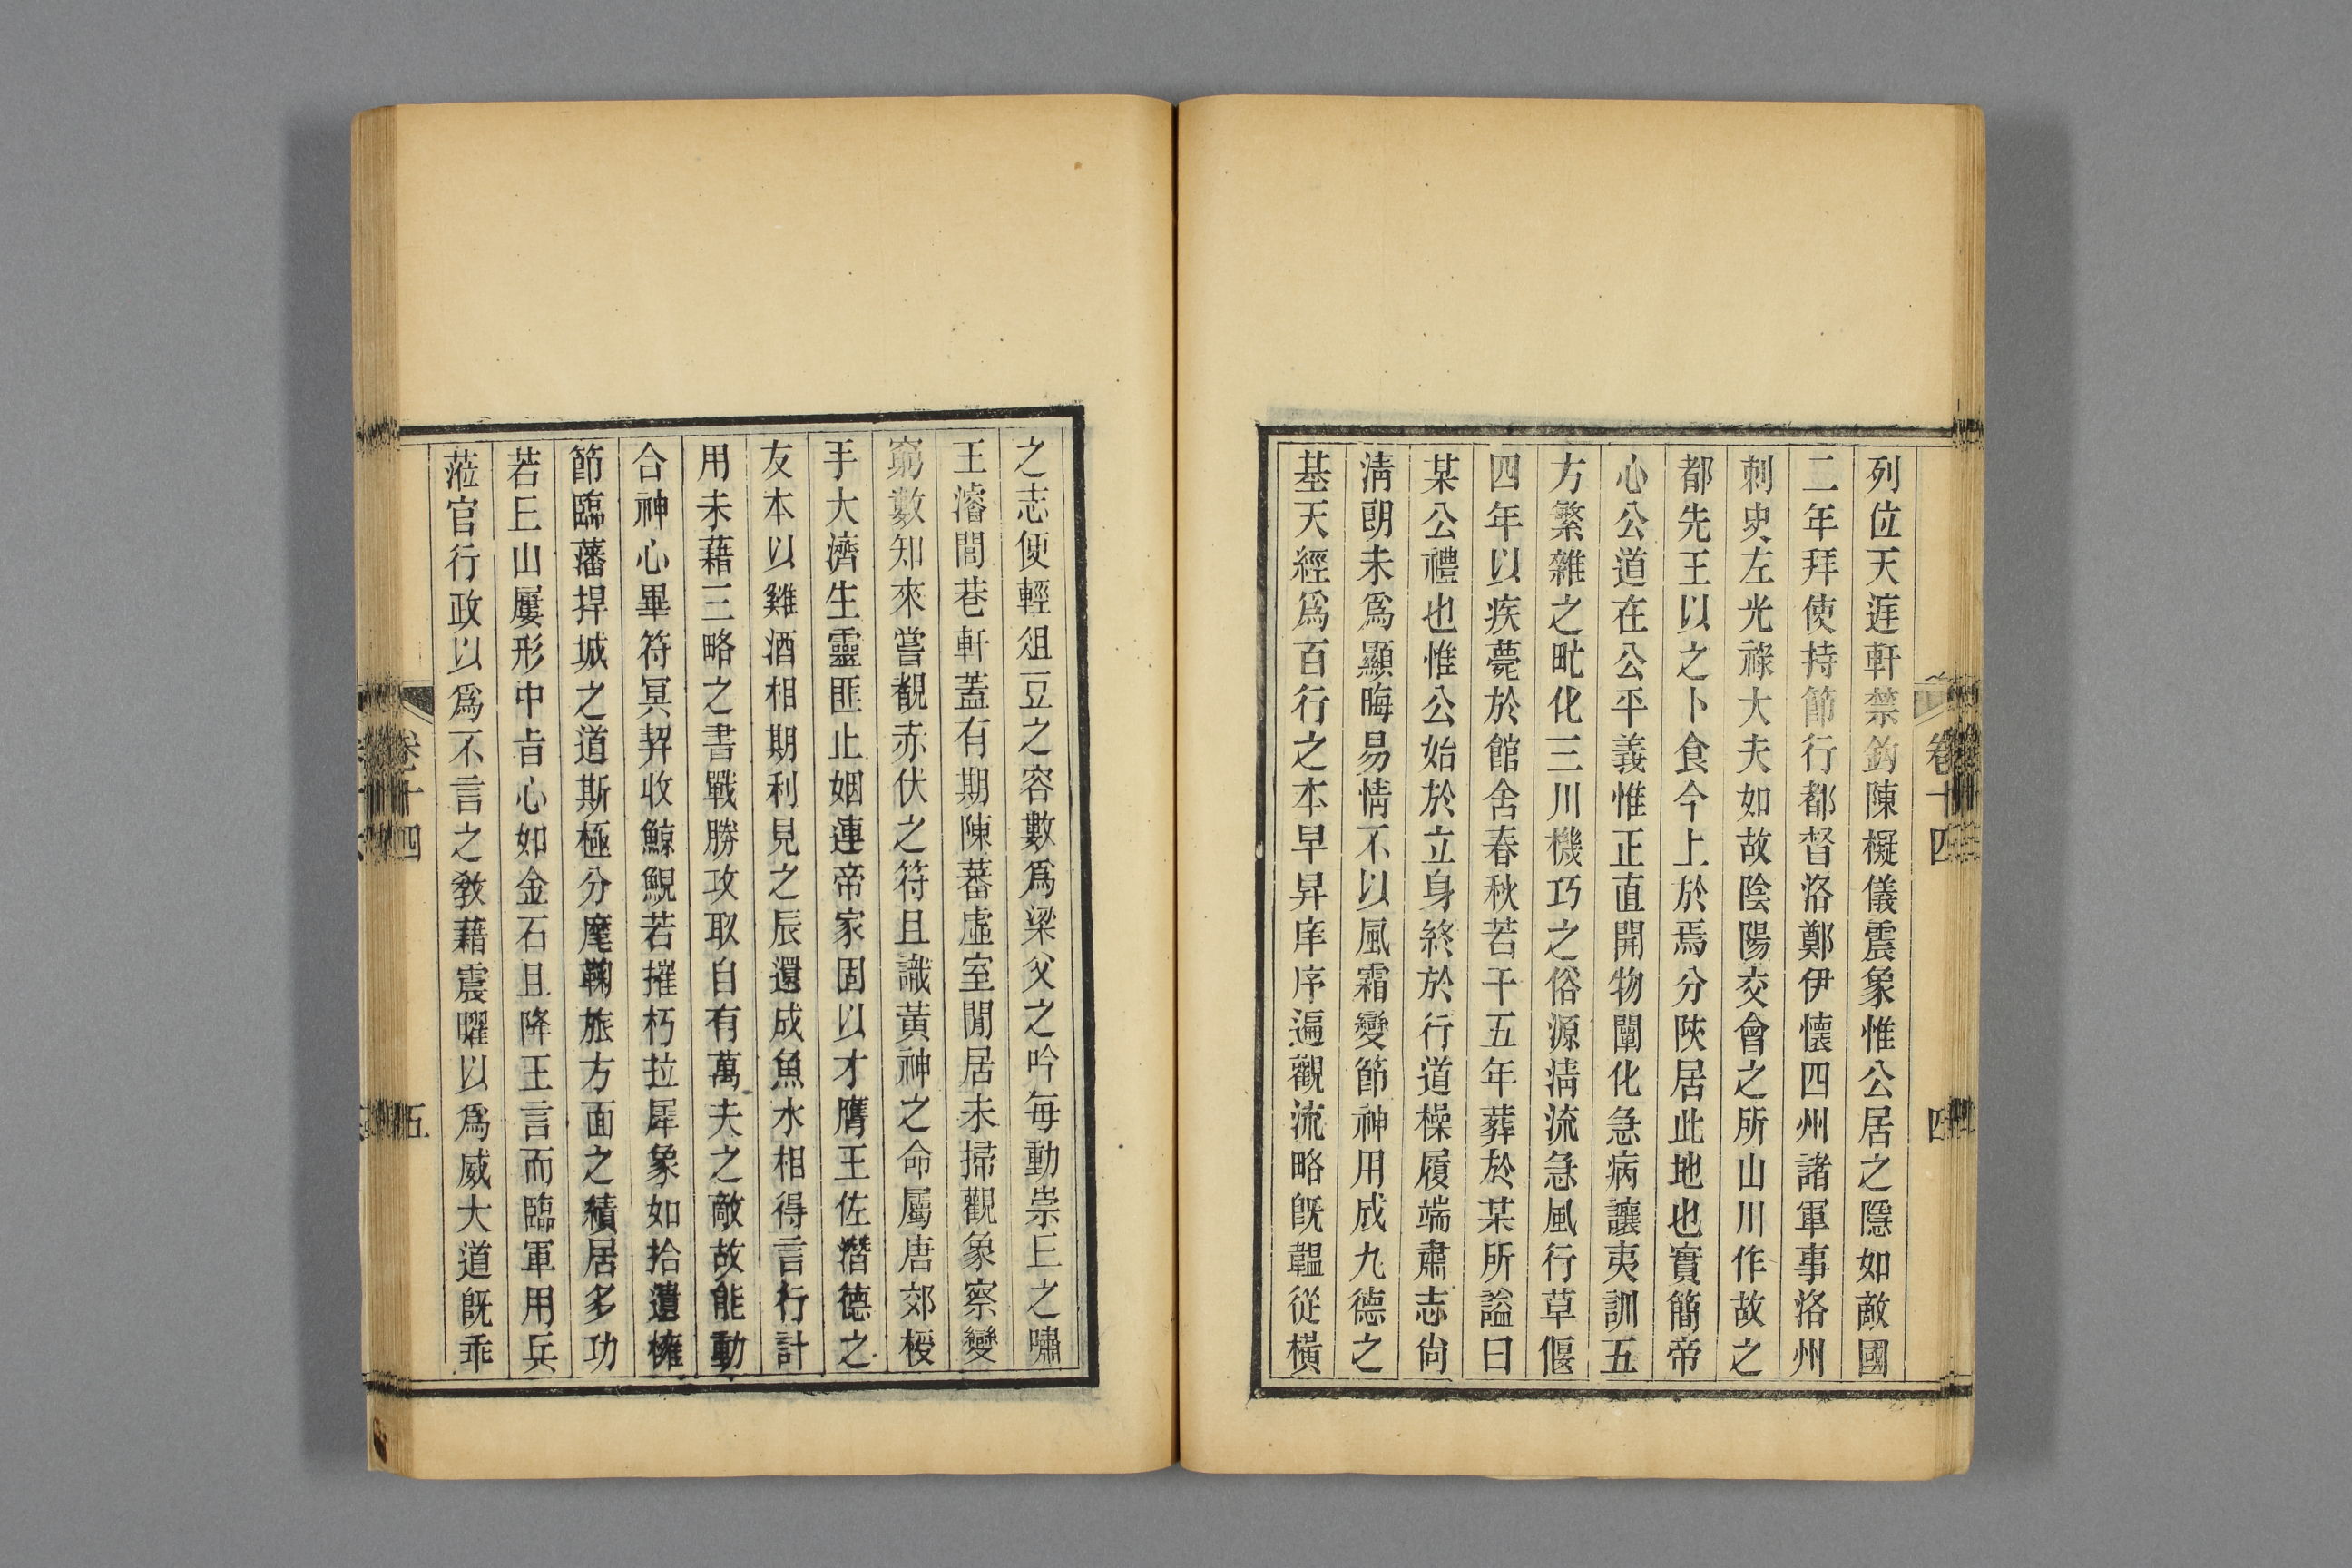 列位天庭軒禁鈎陳擬儀震象惟公居之隱如敵國
二年拜使持節行都督洛鄭伊懷四州諸軍事洛州
刺史左光祿大夫如故陰陽交會之所山川作故之
都先王以之卜食今上於焉分陜居此地也實簡帝
心公道在公平義惟正直開物闡化急病讓夷訓五
方繁雜之甿化三川機巧之俗源淸流急風行草偃
四年以疾薨於館舍春秋若干五年葬於某所謚曰
某公禮也惟公始於立身終於行道橾履端肅志尙
淸朗未爲顯晦易情不以風霜變節神用成九德之
基天經爲百行之本早昇庠序遍觀流略旣韞從橫
卷十四
四
之志便輕俎豆之容數爲梁父之吟每動崇𠀉之嘯
王濬閭巷軒蓋有期陳蕃虛室閒居未掃觀象察變
窮數知來嘗覩赤伏之符且識黃神之命屬唐郊椄
手大濟生靈匪止姻連帝家固以才膺王佐潛德之
友本以雞酒相期利見之辰還成魚水相得言行計
用未藉三略之書戰勝攻取自有萬夫之敵故能動
合神心畢符冥契收鯨鯢若摧朽拉犀象如拾遺擁
節臨藩捍城之道斯極分麾鞠旅方面之績居多功
若𠀉山屢形中旨心如金石且降王言而臨軍用兵
蒞官行政以爲不言之敎藉震曜以爲威大道旣乖
卷十四
五